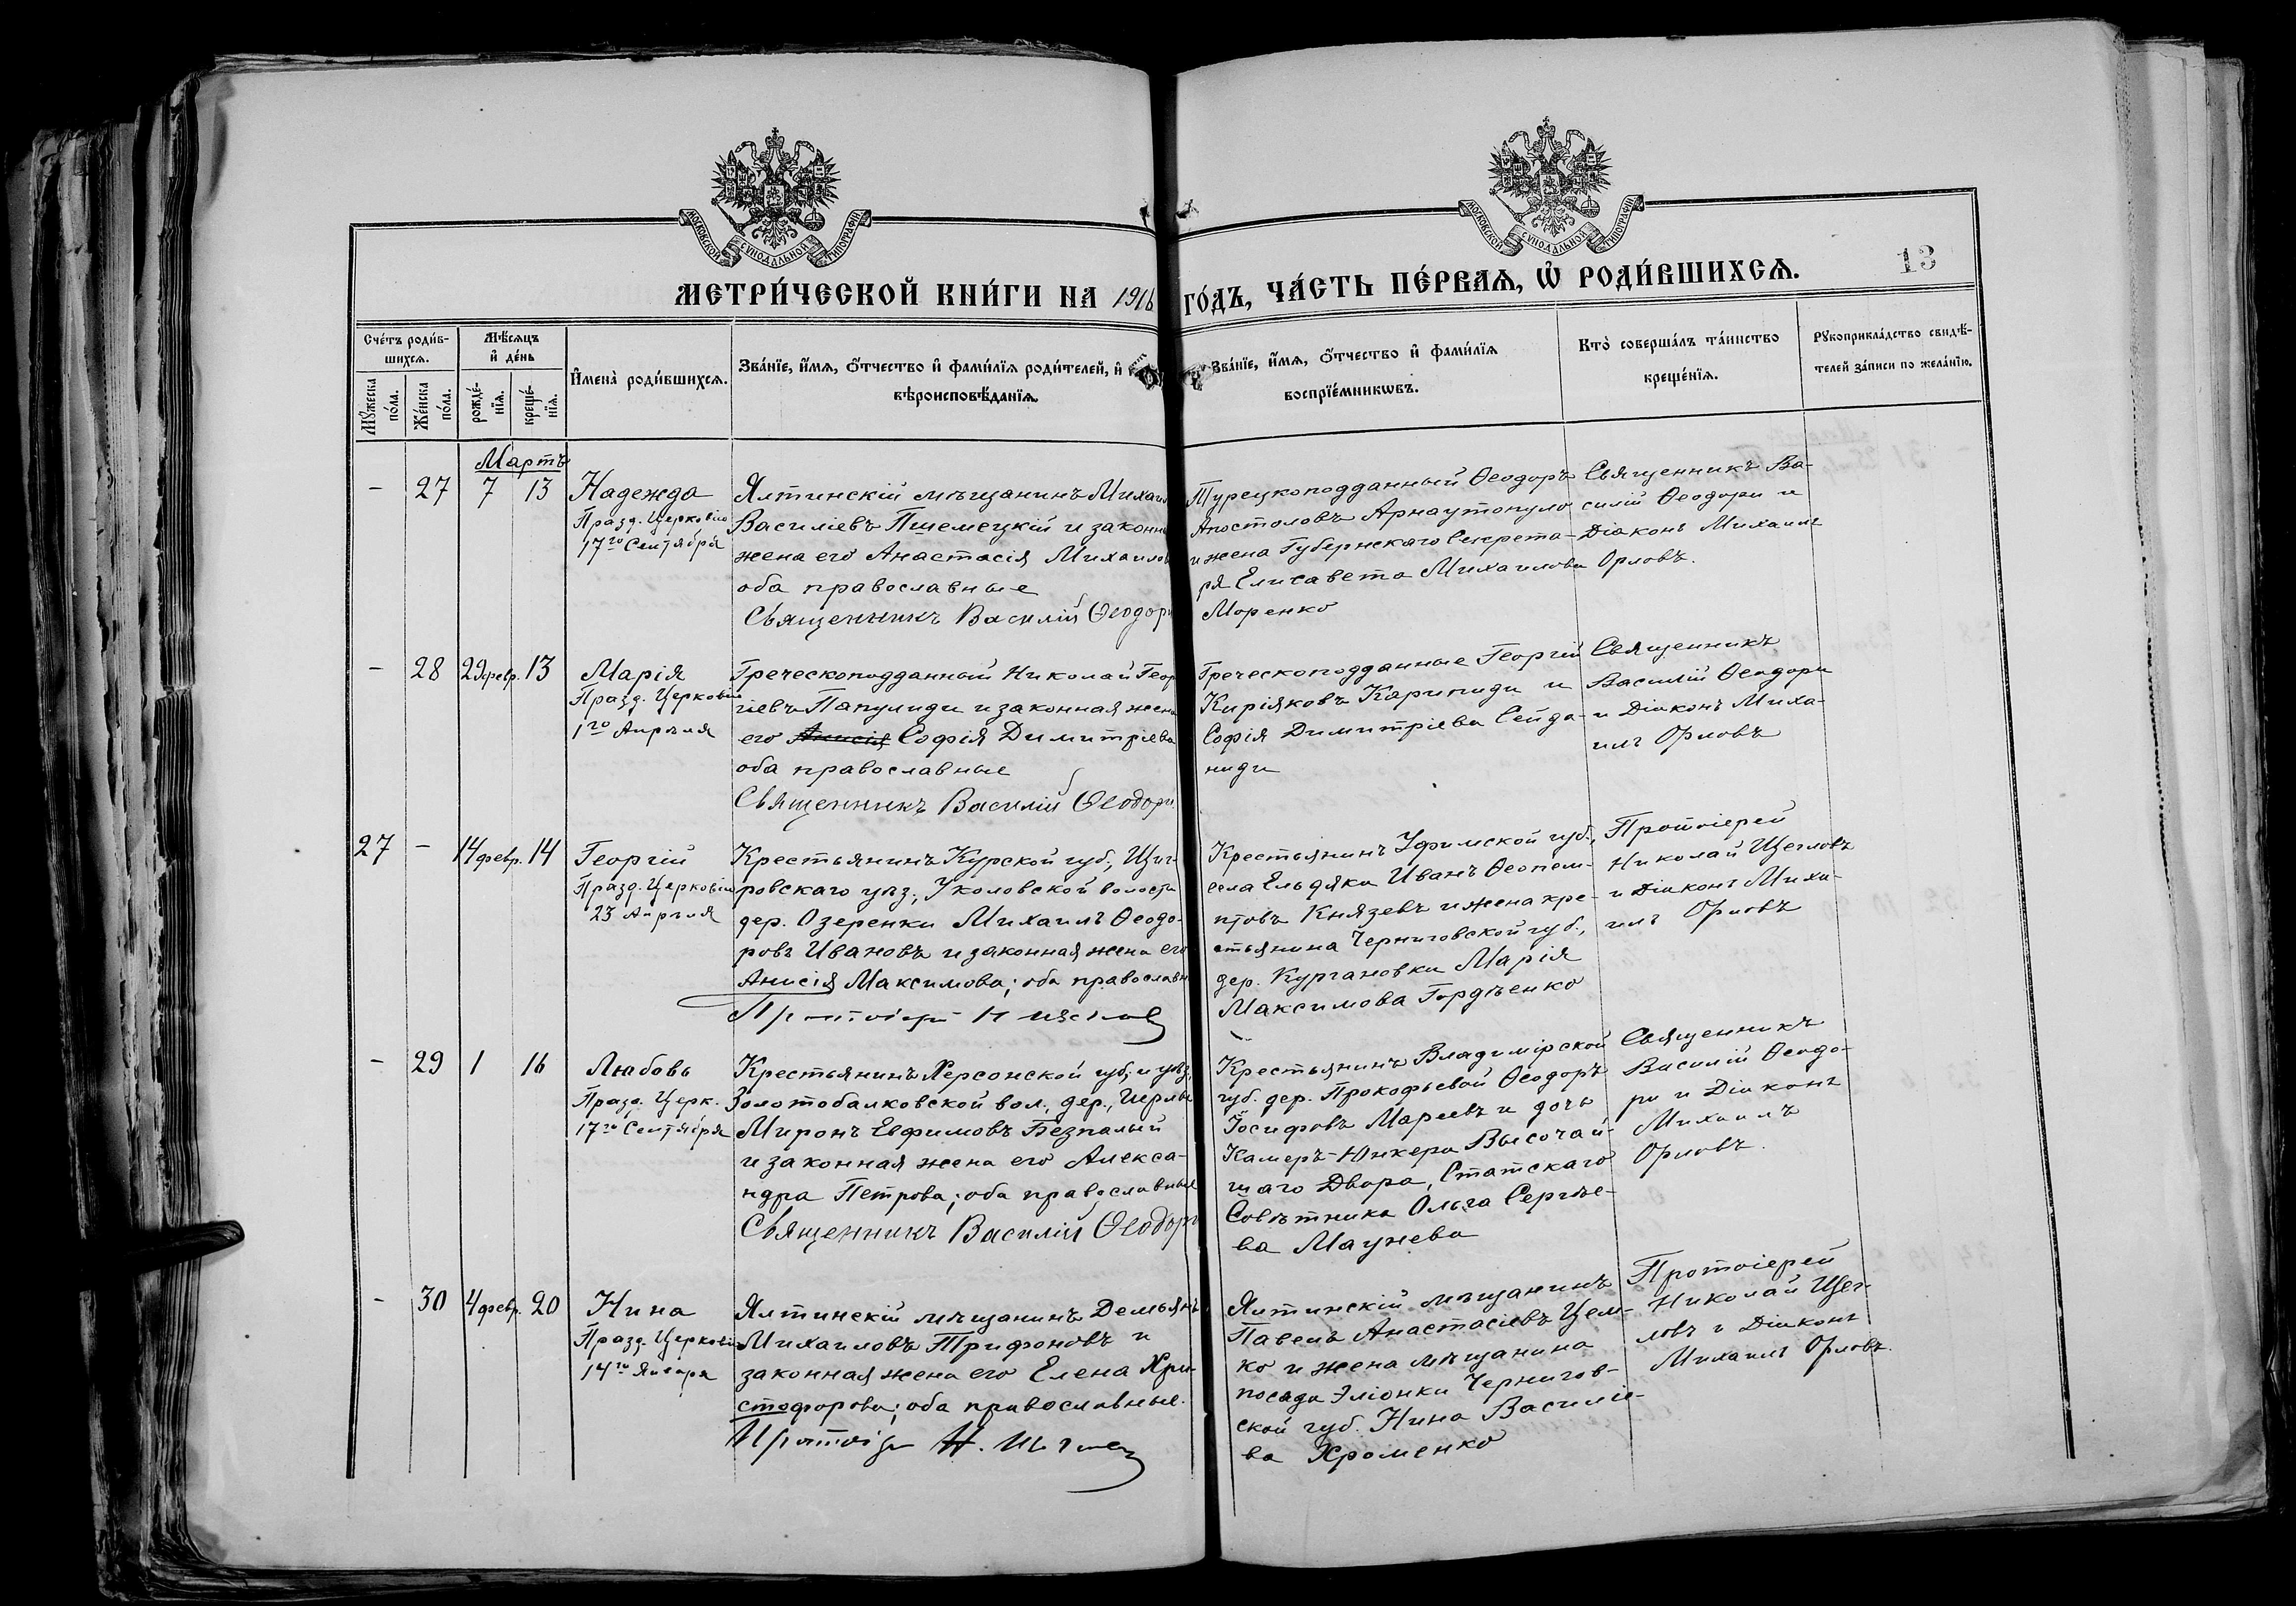 МОСКОВСКОЙ СѴНОДАЛЬНОЙ ТИПОГРАФІИ
МОСКОВСКОЙ СѴНОДАЛЬНОЙ ТИПОГРАФІИ
МЕТРИ́ЧЕСКОЙ КНИ́ГИ НА 1916
ГО́ДЪ, ЧА́СТЬ ПЕ́РВАѦ, Ѡ҆ РОДИ́ВШИХСѦ.
13
Сче́тъ роди́в-
шихсѧ.
Мꙋ́жеска
по́ла.
Же́нска
по́ла.
Мѣ́сѧцъ
и҆ де́нь
рожде́-
нїѧ.
креще́-
нїѧ.
И҆мена̀ роди́вшихсѧ.
Зва́нїе, и҆́мѧ, ѻ҆́тчество и҆ фами́лїѧ роди́телей, и҆
вѣроисповѣ́данїѧ.
Зва́нїе, и҆́мѧ, ѻ҆́тчество и҆ фами́лїѧ
воспрїе́мникѡвъ.
Кто̀ соверша́лъ та́инство
креще́нїѧ.
Рꙋкоприкла́дство свидѣ́-
телей за́писи по жела́нїю.
Мартъ
- 27 7 13
Надежда
Празд. Церковію
17го Сентября
Ялтинскій мѣщанинъ Михаил
Василіевъ Пшемецкій и законн
жена его Анастасія Михаилов
оба православные
Священникъ Василій Ѳеодори
Турецкоподданный Ѳеодоръ
Апостоловъ Арнаутопуло
и жена Губернскаго Секрета-
ря Елисавета Михаилова
Моренко
Священникъ Ва-
силій Ѳеодори и
Діаконъ Михаилъ
Орловъ.
- 28 29 февр. 13
Марія
Празд. Церковію
1го Апрѣля
Греческоподданный Николай Геор
гіевъ Папулиди и законная жена
его Анисія Софія Димитріева
оба православные
Священникъ Василій Ѳеодори.
Греческоподданные Георгій
Киріяковъ Карипиди и
Софія Димитріева Сейда-
ниди
Священникъ
Василій Ѳеодори
и Діаконъ Миха-
илъ Орловъ
27 - 14 февр. 14
Георгій
Празд. Церковію
23 Апрѣля
Крестьянинъ Курской губ., Щиг-
ровскаго уѣз., Уколовской волости
дер. Озеренки Михаилъ Ѳеодо-
ровъ Ивановъ и законная жена его
Анисія Максимова; оба православн
Протоіерей Н Щегловъ
Крестьянинъ Уфимской губ.,
села Ельдяки Иванъ Ѳеопем-
птовъ Князевъ и жена кре-
стьянина Черниговской губ.,
дер. Кургановки Марія
Максимова Гордѣенко
Протоіерей
Николай Щегловъ
и Діаконъ Миха-
илъ Орловъ
- 29 1 16
Любовь
Празд. Церк.
17го Сентября
Крестьянинъ Херсонской губ. и уѣз.,
Золотобалковской вол., дер.,
Миронъ Евфимовъ Безпалый
и законная жена его Алекса-
ндра Петрова; оба православные
Священникъ Василій Ѳеодори
Крестьянинъ Владимірской
губ. дер. Прокофьевой Ѳеодоръ
Іосифовъ Мареевъ и дочь
Камеръ-Юнкера Высочай-
шаго Двора, Статскаго
Совѣтника Ольга Сергѣе-
ва
Священникъ
Василій Ѳеодо-
ри и Діаконъ
Михаилъ
Орловъ.
- 30 4 февр. 20
Нина
Празд. Церковію
14го Января
Ялтинскій мѣщанинъ Демьянъ
Михаиловъ Трифоновъ и
законная жена его Елена Хри-
стофорова; оба православные.
Протоіерей Н. Щегловъ
Ялтинскій мѣщанинъ
Павелъ Анастасіевъ Цем-
ко и жена мѣщанина
посада Эліонки Чернигов-
ской губ. Нина Василіе-
ва Хроменко
Протоіерей
Николай Щег-
ловъ и Діаконъ
Михаилъ Орловъ.